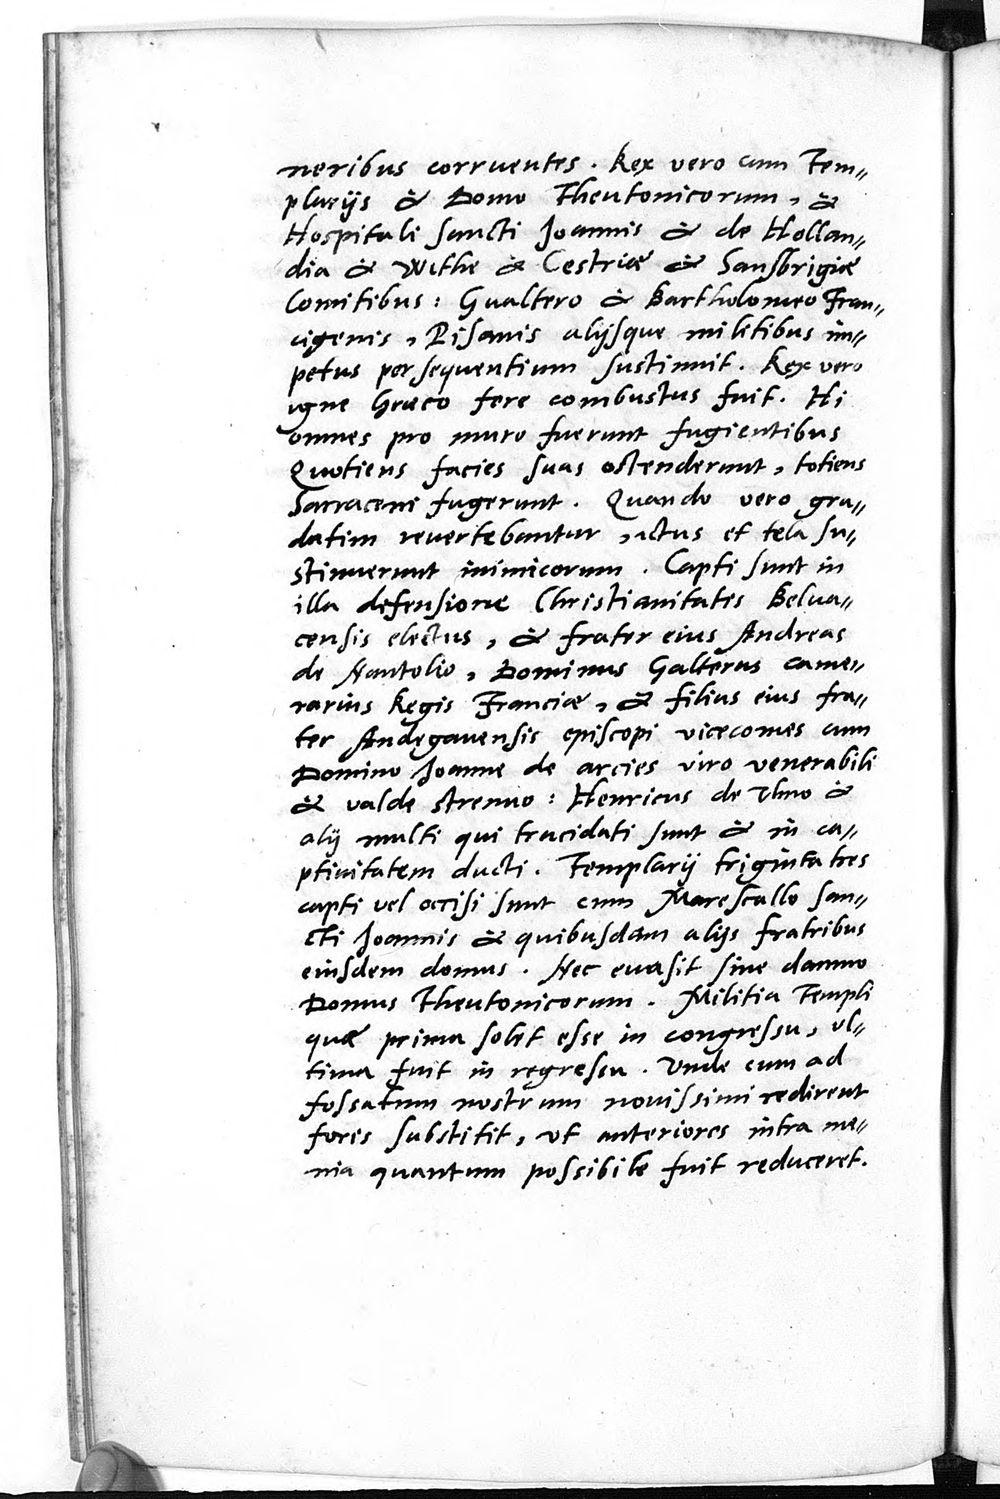 neribus corruentes. Rex vero cum Tem„
plarijs & Domo Theutonicorum, &
Hospitali sancti Joannis & de Hollan„
dia & Withe & Cestriæ & Sansbrigiæ
Comitibus: Gualtero & Bartholomeo Fran„
cigenis, Pisanis alijsque militibus im„
petus persequentium sustinuit. Rex vero
igne Græco fere combustus fuit. Hi
omnes pro muro fuerunt fugientibus
Quotiens facies suas ostenderunt, totiens
Sarraceni fugerunt. Quando vero gra„
datim revertebantur, ictus et tela su„
stinuerunt inimicorum. Capti sunt in
illa defensione Christianitatis Belua„
censis electus, & frater eius Andreas
de Nantolio, Dominus Galterus came„
rarius Regis Franciæ, & filius eius fra„
ter Andegauensis episcopi vicecomes cum
Domino Joanne de arcies viro venerabili
& valde strenuo: Henricus de Vlmo &
alij multi qui trucidati sunt & in ca„
ptiuitatem ducti. Templarij triginta tres
capti vel occisi sunt cum Marescallo San„
cti Joannis & quibusdam alijs fratribus
eiusdem domus. Nec euasit sine damno
Domus Theutonicorum. Militia Templi
quæ prima solet esse in congressu, vl„
tima fuit in regressu. Vnde cum ad
fossatum nostrum nouissimi redirent
foris substitit, vt anteriores intra me„
nia quantum possibile fuit reduceret.